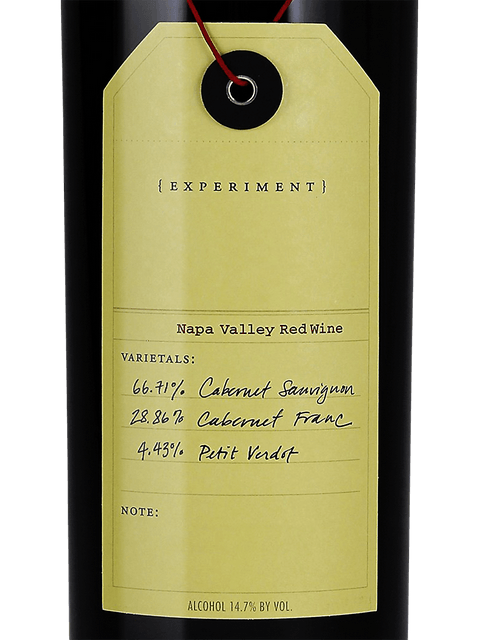 {EXPERIMENT}
Napa Valley Red Wine
VARIETALS:
66.71% Cabernet Sauvignon
28.86% Cabernet Franc
4.43% Petit Verdot
NOTE:
ALCOHOL 14.7% BY VOL.